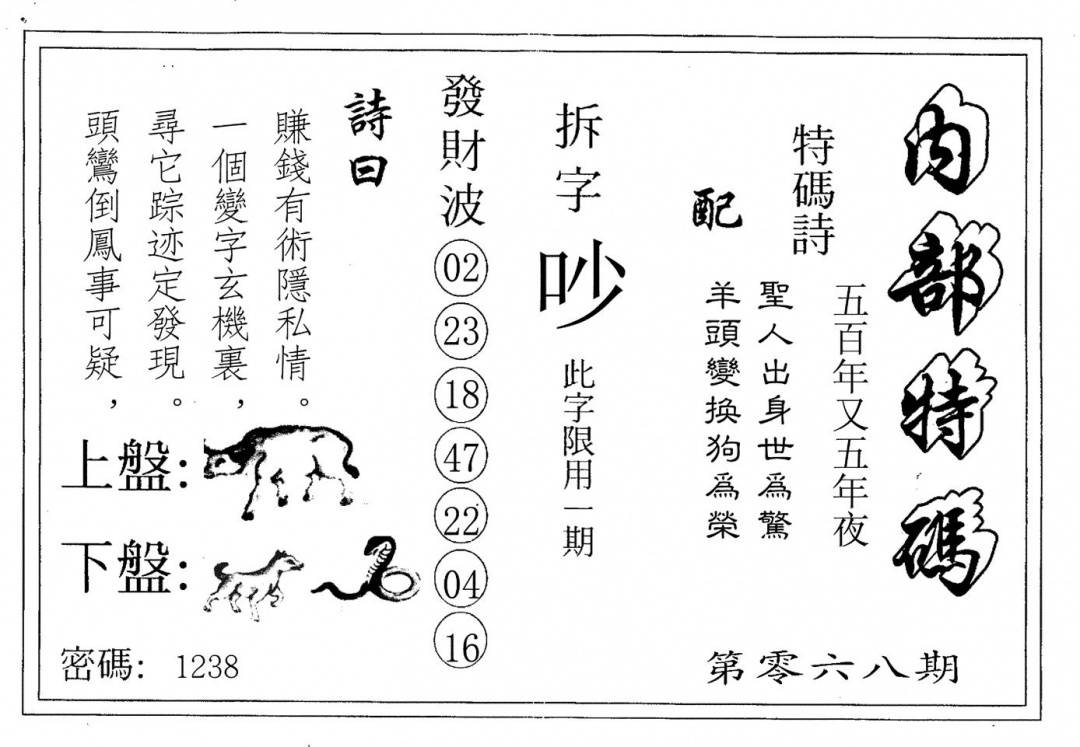 內部特碼
第零六八期
特碼詩
五百年又五年夜
配
聖人出身世為驚
羊頭變换狗為榮
拆字
吵
此字限用一期
發財波
02
23
18
47
22
04
16
詩曰
賺錢有術隱私情。
一個變字玄機裏，
尋它踪迹定發現。
頭鸞倒鳳事可疑，
上盤：
下盤：
密碼： 1238